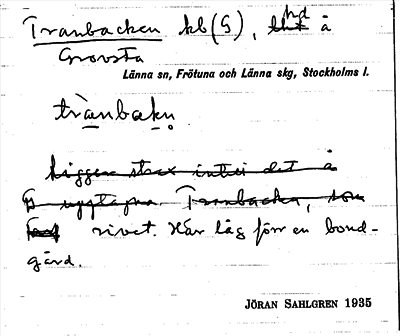 Tranbacken kb (G), hd å
Grovsta
Länna sn, Frötuna och Länna skg, Stockholms l.
trànbakn
ligger strax intill det å
G upptagna Tranbacken, som
rivet. Här låg förr en bond-
gård.
JÖRAN SAHLGREN 1935